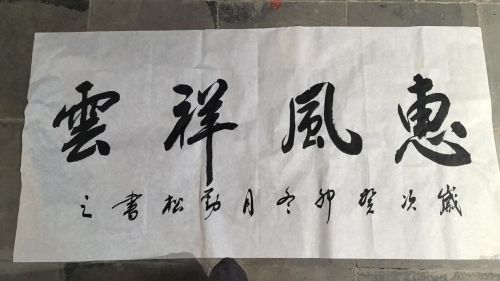 惠風祥雲
歲次癸卯冬月勤松書之